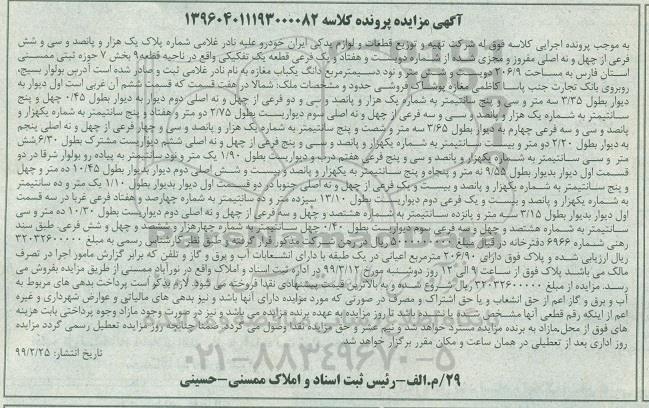 آگهی مزایده پرونده کلاسه ۱۳۹۶۰۴۰۱۱۱۹۳۰۰۰۰۸۲
به موجب پرونده اجرایی کلاسه فوق له شرکت تهیه و توزیع قطعات و لوازم یدکی ایران خودرو علیه نادر غلامی شماره پلاک یک هزار و پانصد و سی و شش
فرعی از چهل و نه اصلی مفروز و مجزی شده از شماره دویست و هفتاد و یک فرعی قطعه یک تفکیکی واقع در ناحیه قطعه ۹ بخش ۷ حوزه ثبتی ممسنی
استان فارس به مساحت ۲۰۶/۹ دویست و شش متر و نود دسیمترمربع دانگ یکباب مغازه به نام نادر غلامی ثبت و صادر شده است آدرس بولوار بسیج،
روبروی بانک تجارت جنب پاساژ کاظمی مغازه پوشاک فروشی حدود و مشخصات ملک: شمالا در هفت قسمت که قسمت ششم آن غربی است اول دیوار به
دیوار بطول ۳/۳۵ سه متر و سی و پنج سانتیمتر به شماره یک هزار و پانصد و سی و دو فرعی از چهل و نه اصلی دوم دیوار به دیوار بطول ۰/۴۵ چهل و پنج
سانتیمتر به شماره یک هزار و پانصد و سی و سه فرعی از چهل و نه اصلی سوم دیواریست بطول ۲/۷۵ دو متر و هفتاد و پنج سانتیمتر به شماره یکهزار و
پانصد و سی و سه فرعی چهارم به دیوار بطول ۳/۶۵ سه متر و شصت و پنج سانتیمتر به شماره یک هزار و پانصد و سی و چهار فرعی از چهل و نه اصلی پنجم
به دیوار بطول ۲/۲۰ دو متر و بیست سانتیمتر به شماره یکهزار و پانصد و سی و پنج فرعی از چهل و نه اصلی ششم دیواریست مشترک بطول ۶/۳۰ شش
متر و سی سانتیمتر به شماره یکهزار و پانصد و سی و پنج فرعی هفتم درب و دیواریست بطول ۱/۹۰ یک متر و نود سانتیمتر به پیاده رو بولوار شرقا در دو
قسمت اول دیوار بدیوار بطول ۹/۵۵ نه متر و پنجاه و پنج سانتیمتر به یکهزار و پانصد و بیست و شش اصلی دوم دیوار بدیوار بطول ۱۰/۴۵ ده متر و چهل
و پنج سانتیمتر به شماره یکهزار و پانصد و بیست و یک فرعی از چهل و نه اصلی جنوبا در دو قسمت اول دیوار بدیوار بطول ۱/۱۰ یک متر و ده سانتیمتر
به شماره یکهزار و پانصد و بیست و یک فرعی دوم دیواریست بطول ۱۳/۱۰ سیزده متر و ده سانتیمتر به شماره چهارصد و هفتاد فرعی غربا در سه قسمت
اول دیوار بدیوار بطول ۳/۱۵ سه متر و پانزده سانتیمتر به شماره هشتصد و چهل و سه فرعی از چهل و نه اصلی دوم دیواریست بطول ۱۰/۳۰ ده متر و سی
سانتیمتر به شماره هشتصد و چهل و سه فرعی سوم دیواریست بطول ۰/۴۰ چهل سانتیمتر به شماره چهارهزار و پانصد و چهل و شش فرعی. طبق سند
رهنی شماره ۶۹۶۶ دفترخانه در قبال مبلغ در رهن شرکت مذکور قرار گرفته و طبق نظر کارشناس رسمی به مبلغ ۳۲۰۳۲۶۰۰۰۰۰
ریال ارزیابی شده و پلاک فوق دارای ۲۰۶/۹۰ مترمربع اعیانی در یک طبقه با دارای انشعابات آب و برق و گاز و تلفن که برابر گزارش مامور اجرا در تصرف
مالک می باشد پلاک فوق از ساعت ۹ الی ۱۲ روز دوشنبه مورخ ۹۹/۳/۱۲ در اداره ثبت اسناد و املاک واقع در نورآباد ممسنی از طریق مزایده بفروش می
رسد. مزایده از مبلغ ۳۲۰۳۲۶۰۰۰۰۰ ریال شروع شده و به بالاترین قیمت پیشنهادی نقدا فروخته می شود. لازم بذکر است پرداخت بدهی های مربوط به
آب و برق و گاز اعم از حق انشعاب و یا حق اشتراک و مصرف در صورتی که مورد مزایده دارای آنها باشد و نیز بدهی های مالیاتی و عوارض شهرداری و غیره
اعم از اینکه رقم قطعی آنها مشخص شده یا نشده باشد تا روز مزایده به عهده برنده مزایده می باشد و نیز در صورت وجود مازاد وجوه پرداختی بابت هزینه
های فوق از محل مازاد به برنده مزایده مسترد خواهد شد و نیم عشر و حق مزایده نقدا وصول می گردد. ضمنا چنانچه روز مزایده تعطیل رسمی گردد مزایده
روز اداری بعد از تعطیلی در همان ساعت و مکان مقرر برگزار خواهد شد.
تاریخ انتشار: ۹۹/۲/۲۵
۰۲۱-۸۸۳۴۹۶۷۰-۵
۲۹/م.الف-رئیس ثبت اسناد و املاک ممسنی-حسینی